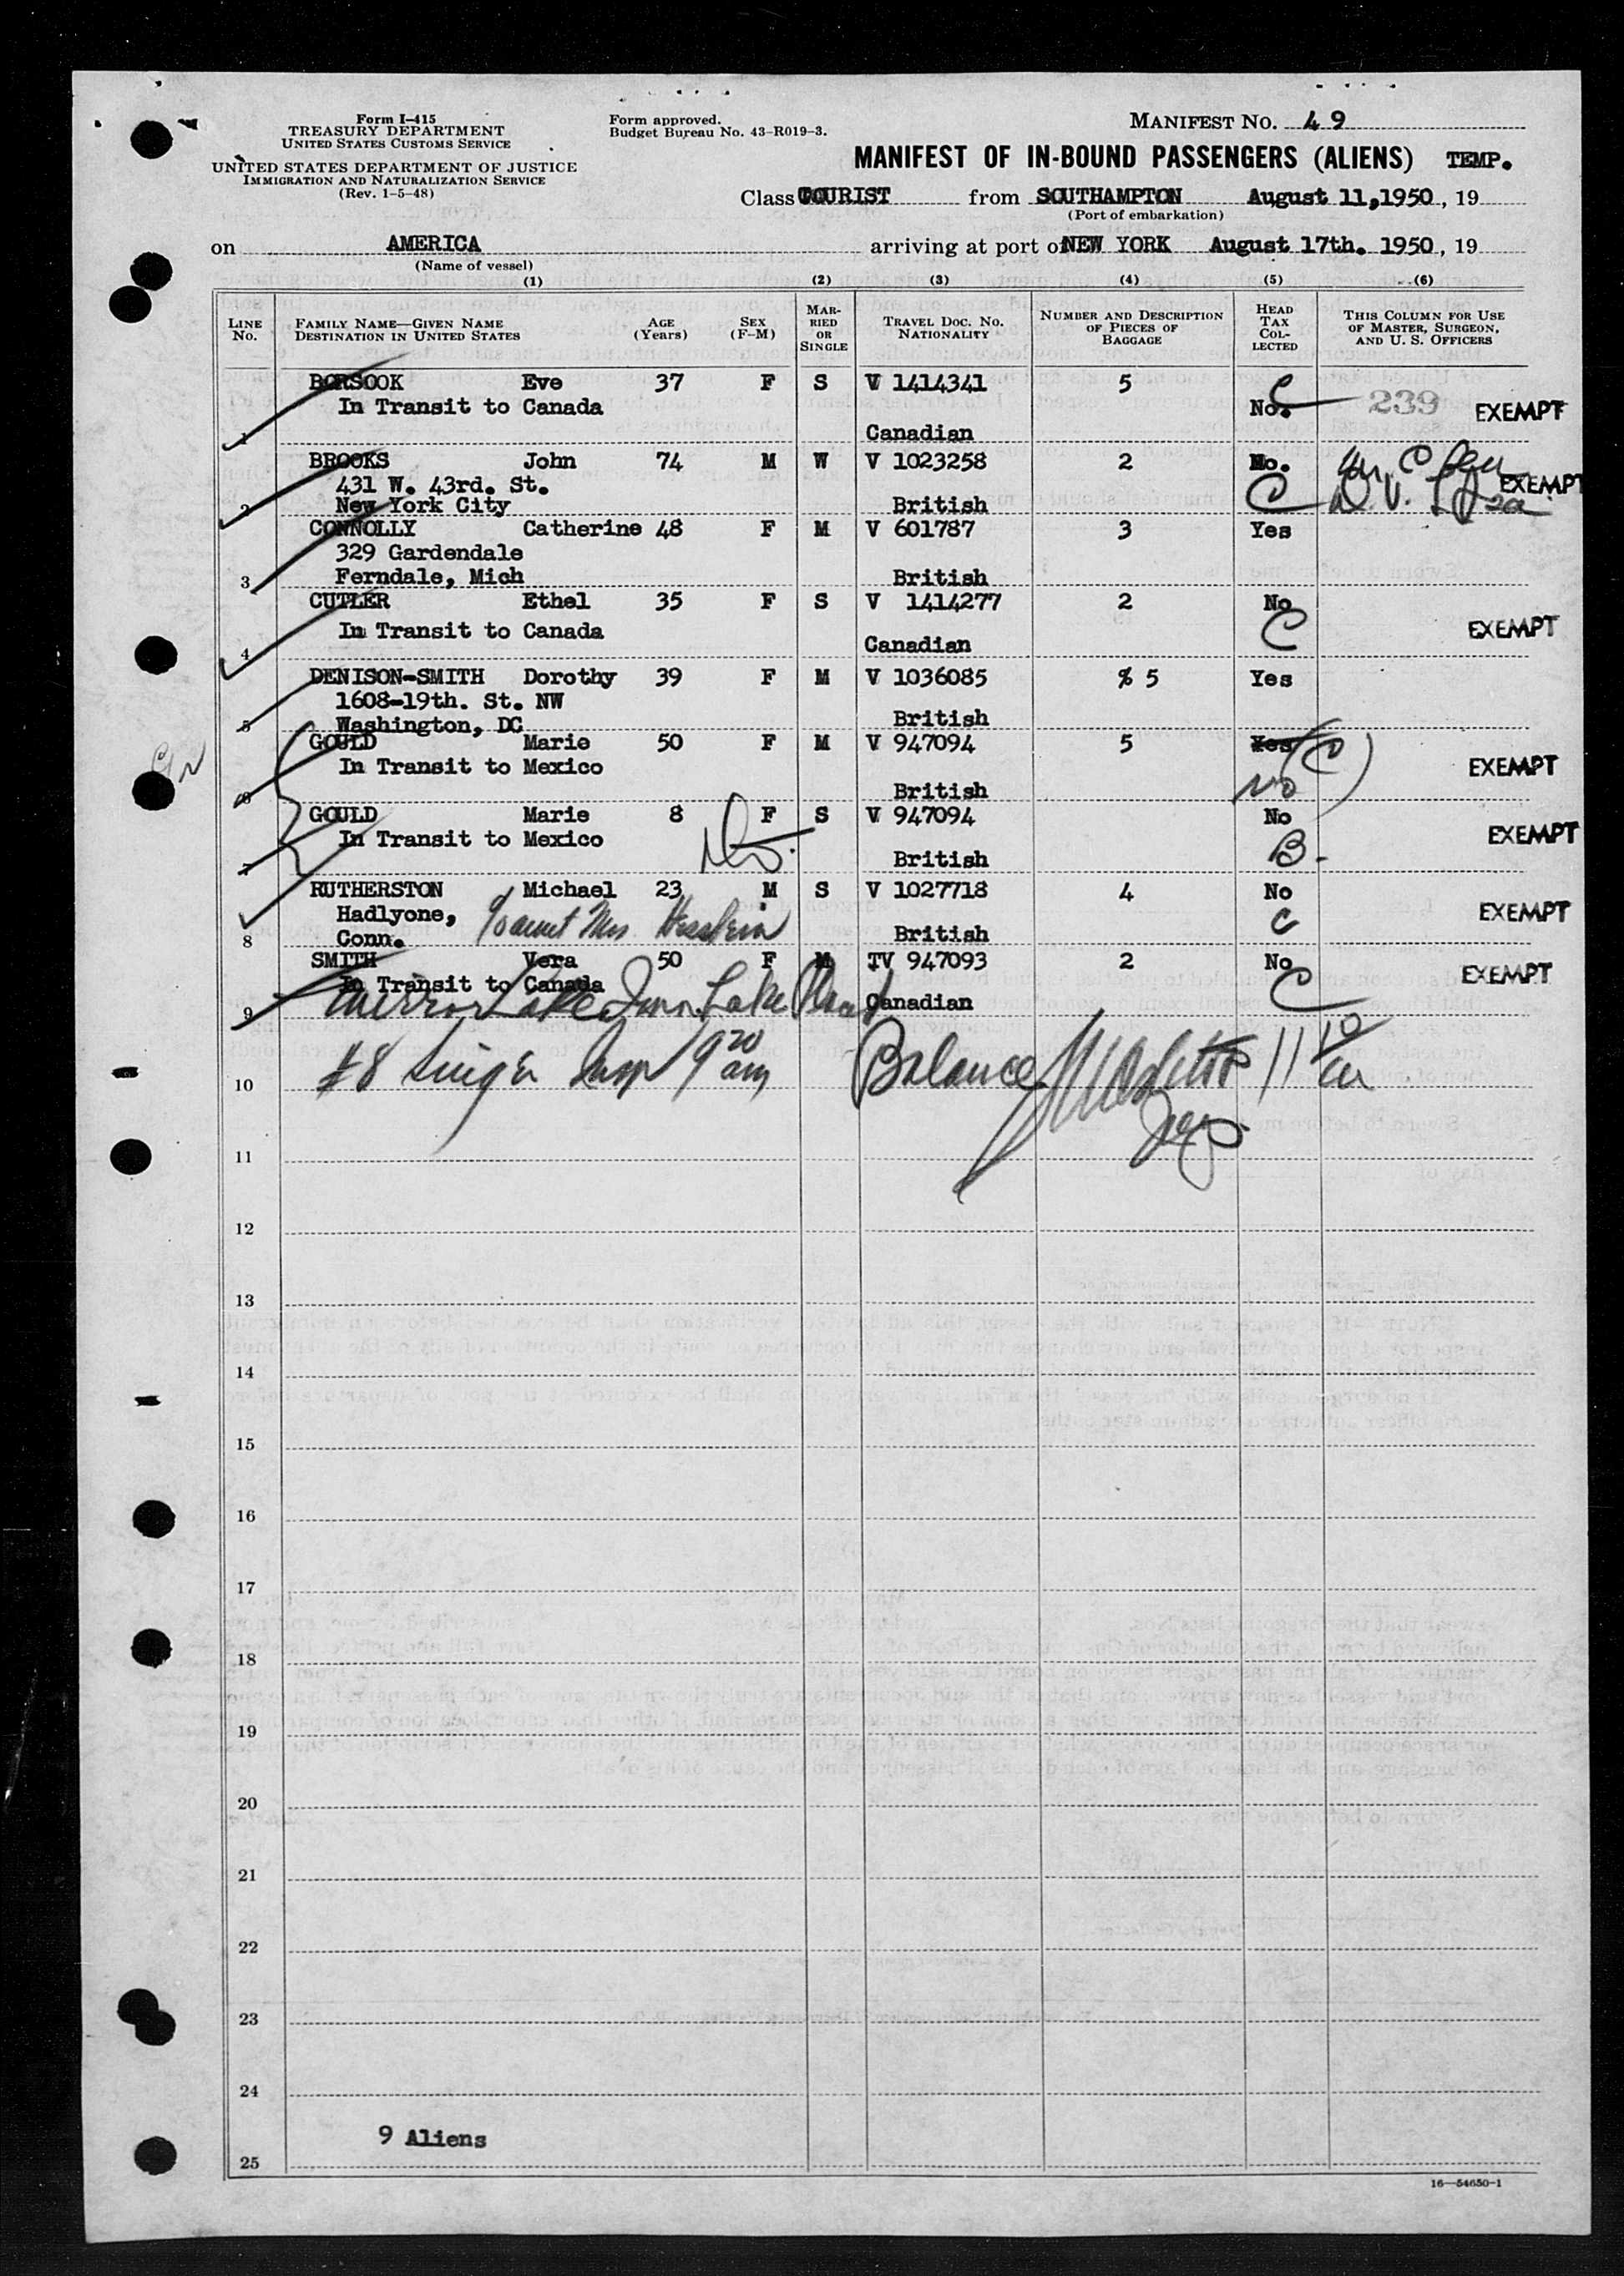 Form I-415
TREASURY DEPARTMENT
UNITED STATES CUSTOMS SERVICE
UNITED STATES DEPARTMENT OF JUSTICE
IMMIGRATION AND NATURALIZATION SERVICE
(Rev. 1-5-48)
Form approved.
Budget Bureau No. 43-R019-3.
MANIFEST NO. 49
MANIFEST OF IN-BOUND PASSENGERS (ALIENS) TEMP.
Class TOURIST from SOUTHAMPTON August 11,1950, 19
(Port of embarkation)
on AMERICA arriving at port of NEW YORK August 17th. 1950, 19
(Name of vessel)
(1) (2) (3) (4) (5) (6)
LINE No. FAMILY NAME—GIVEN NAME DESTINATION IN UNITED STATES AGE (Years) SEX (F-M) MARRIED OR SINGLE TRAVEL DOC. NO. NATIONALITY NUMBER AND DESCRIPTION OF PIECES OF BAGGAGE HEAD TAX COLLECTED THIS COLUMN FOR USE OF MASTER, SURGEON, AND U. S. OFFICERS
BORSOOK Eve 37 F S V 1414341 5 C
In Transit to Canada No. 239 EXEMPT
1 Canadian
BROOKS John 74 M W V 1023258 2 No.
431 W. 43rd. St. C EXEMPT
2 New York City British
CONNOLLY Catherine 48 F M V 601787 3 Yes
329 Gardendale
3 Ferndale, Mich British
CUTLER Ethel 35 F S V 1414277 2 No
In Transit to Canada C EXEMPT
4 Canadian
DENISON-SMITH Dorothy 39 F M V 1036085 5 Yes
1608-19th. St. NW
5 Washington, DC British
GOULD Marie 50 F M V 947094 5 Yes (C)
In Transit to Mexico EXEMPT
6 British No
GOULD Marie 8 F S V 947094 No
In Transit to Mexico EXEMPT
7 British B.
RUTHERSTON Michael 23 M S V 1027718 4 No
Hadlyone, c/o aunt Mrs. Hesslein C EXEMPT
8 Conn. British
SMITH Vera 50 F M TV 947093 2 No
In Transit to Canada C EXEMPT
9 Mirror Lake Inn. Lake Placid Canadian
10 #8 Singer Insp 9 20 am Balance 11 10 am
11
12
13
14
15
16
17
18
19
20
21
22
23
24
9 Aliens
25
16—54650-1